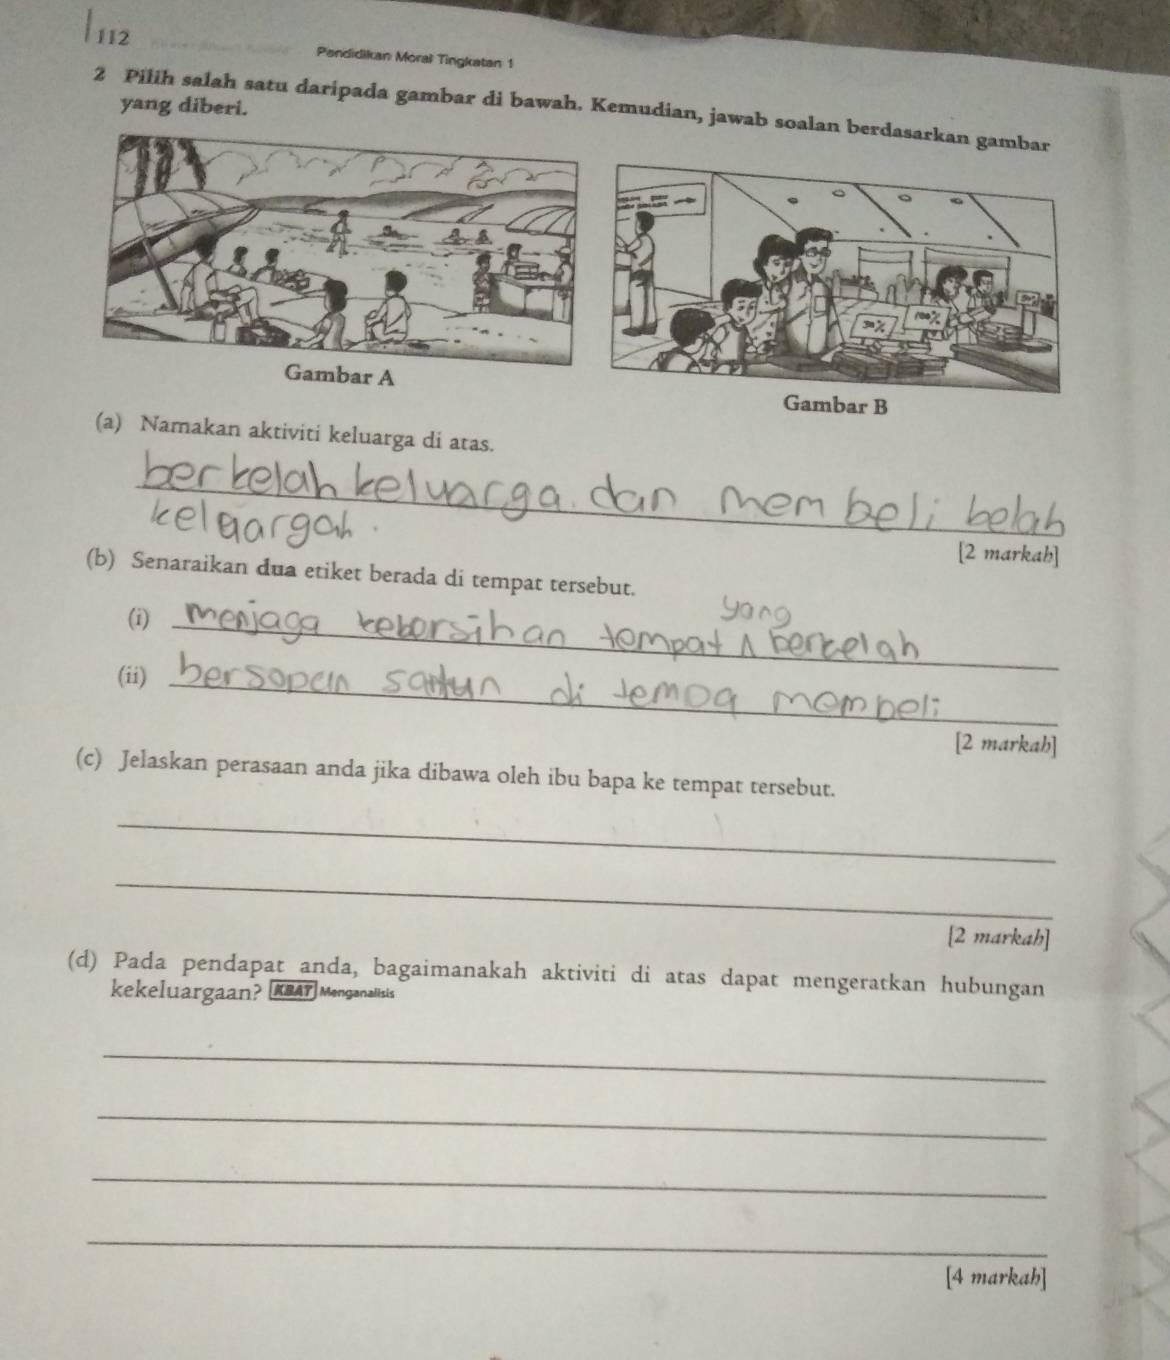 112
Pendidikan Moral Tingkatan 1
2 Pilih salah satu daripada gambar di bawah. Kemudian, jawab soalan berdasarkan gambar
yang diberi.
30%
100%
Gambar A
Gambar B
(a) Namakan aktiviti keluarga di atas.
berkelah keluarga. dan membeli belah
kelaargah.
[2 markah]
(b) Senaraikan dua etiket berada di tempat tersebut.
yang
(i) menjaga kebersihan tempat ∧ berkelah
(ii) bersopan santun di tempa membeli
[2 markah]
(c) Jelaskan perasaan anda jika dibawa oleh ibu bapa ke tempat tersebut.
[2 markah]
(d) Pada pendapat anda, bagaimanakah aktiviti di atas dapat mengeratkan hubungan
kekeluargaan? KBAT Menganalisis
[4 markah]